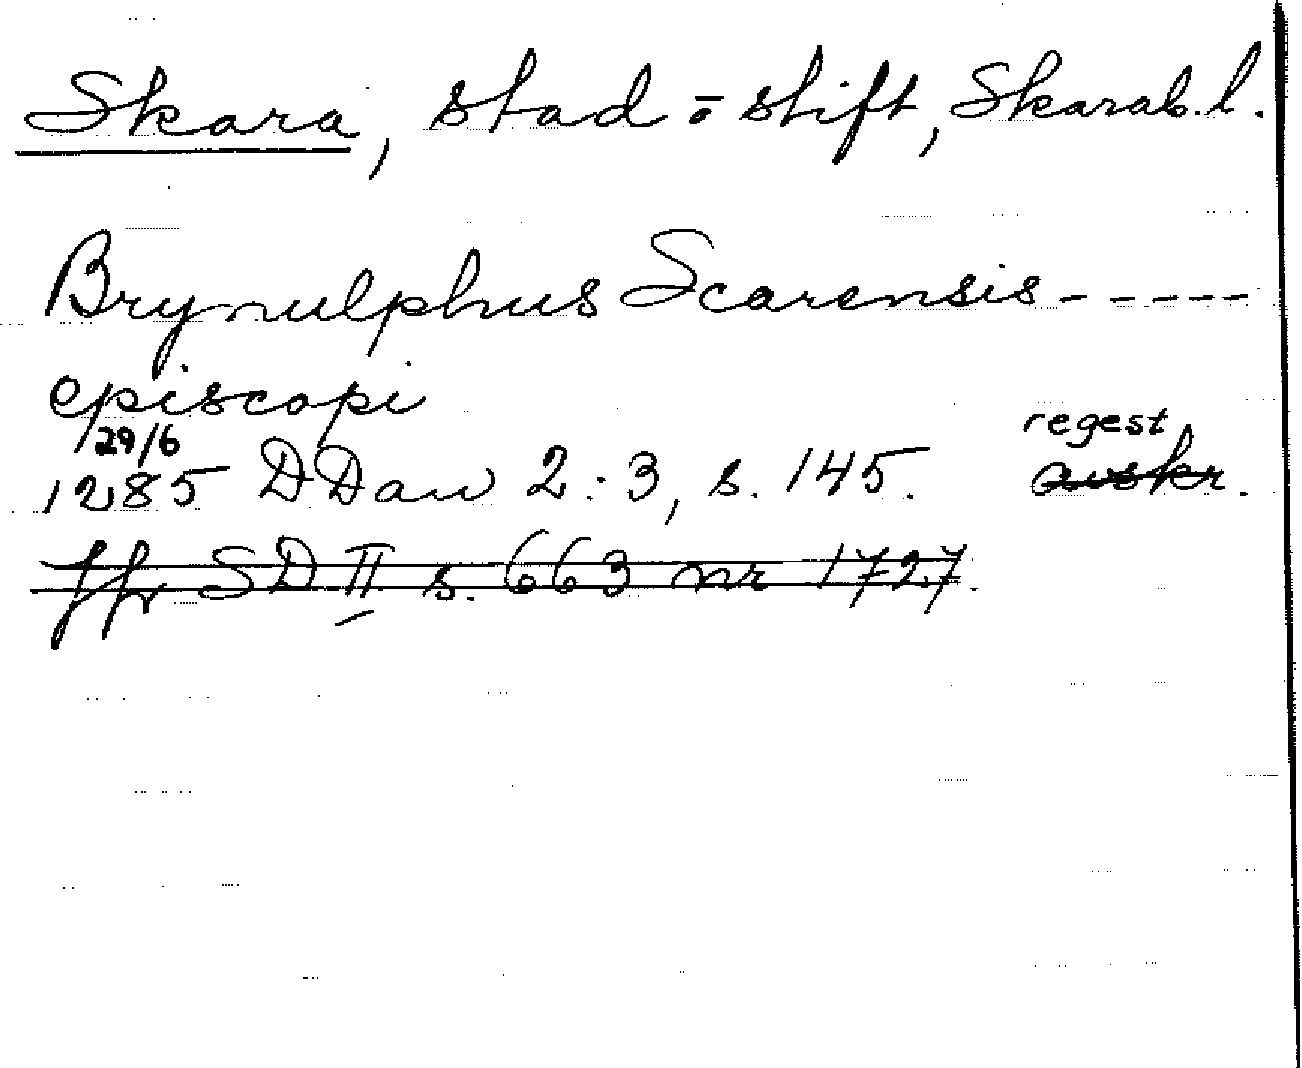 Skara, stad o. stift, Skarab. l.
Brynulphus Scarensis - - - - -
episcopi
29/6 regest
1285 DDan 2:3, s. 145. avskr.
Jfr SD II s. 663 nr 1727.